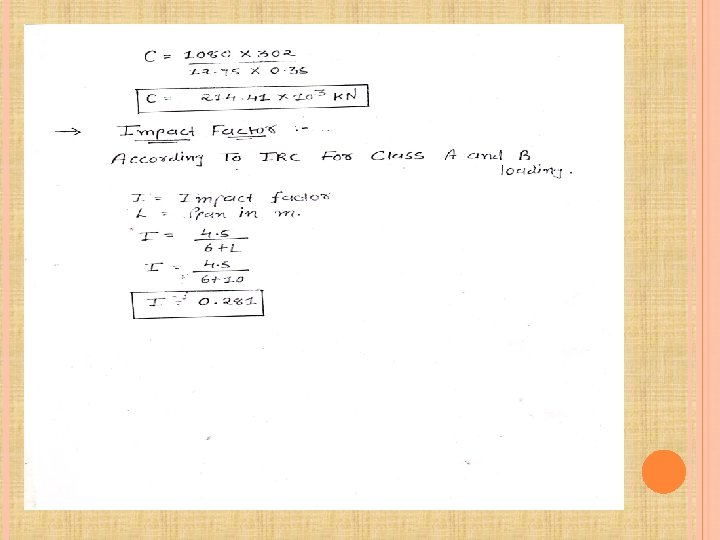 C = 1080 × 302
12.75 × 0.35
C = 214.41 × 10³ KN
→ Impact Factor :-
According To IRC For Class A and B
loading.
I = Impact factor
L = Span in m.
I = 4.5
6+L
I = 4.5
6+10
I = 0.281